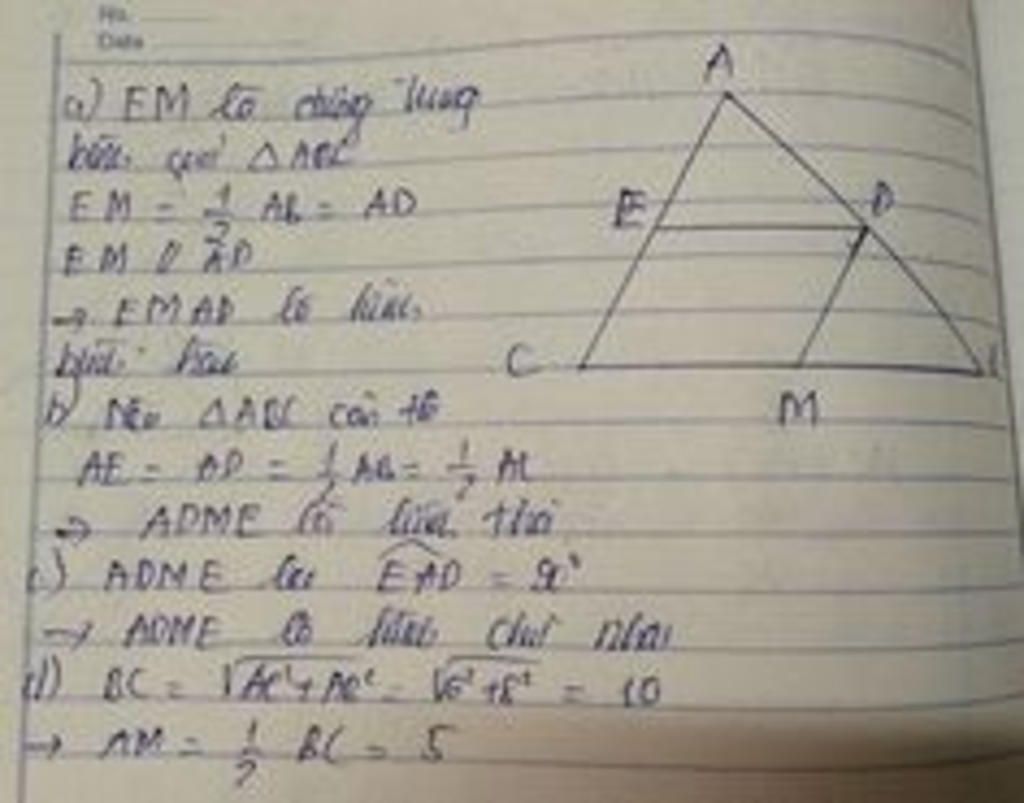 No.
Date
a) EM là đường trung
bình của △ABC
EM = 1/2 AB = AD
EM // AD
→ EMAD là hình
bình hành
b) Nếu △ABC cân tại
AE = AD = 1/2 AB = 1/2 AC
→ ADME là hình thoi
c) ADME có EAD = 90°
→ ADME là hình chữ nhật
d) BC = √AC²+AB² = √6²+8² = 10
→ AM = 1/2 BC = 5
A
E
D
C
M